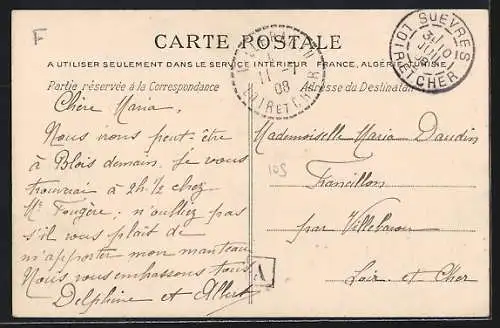 F
CARTE POSTALE
A UTILISER SEULEMENT DANS LE SERVICE INTÉRIEUR FRANCE, ALGÉRIE, TUNISIE
Partie réservée à la Correspondance
Adresse du Destinataire
SUEVRES
LOIR ET CHER
11 -1
08
LOIR ET CHER
Chère Maria,
Nous irons peut-être
à Blois demain. Je vous
trouverai à 2h ½ chez
Me Fougère ; n'oubliez pas
s'il vous plaît de
m'apporter mon manteau
Nous vous embrassons tous
Delphine et Albert
Mademoiselle Maria Daudin
105
Francillon
par Villebarou
Loir et Cher